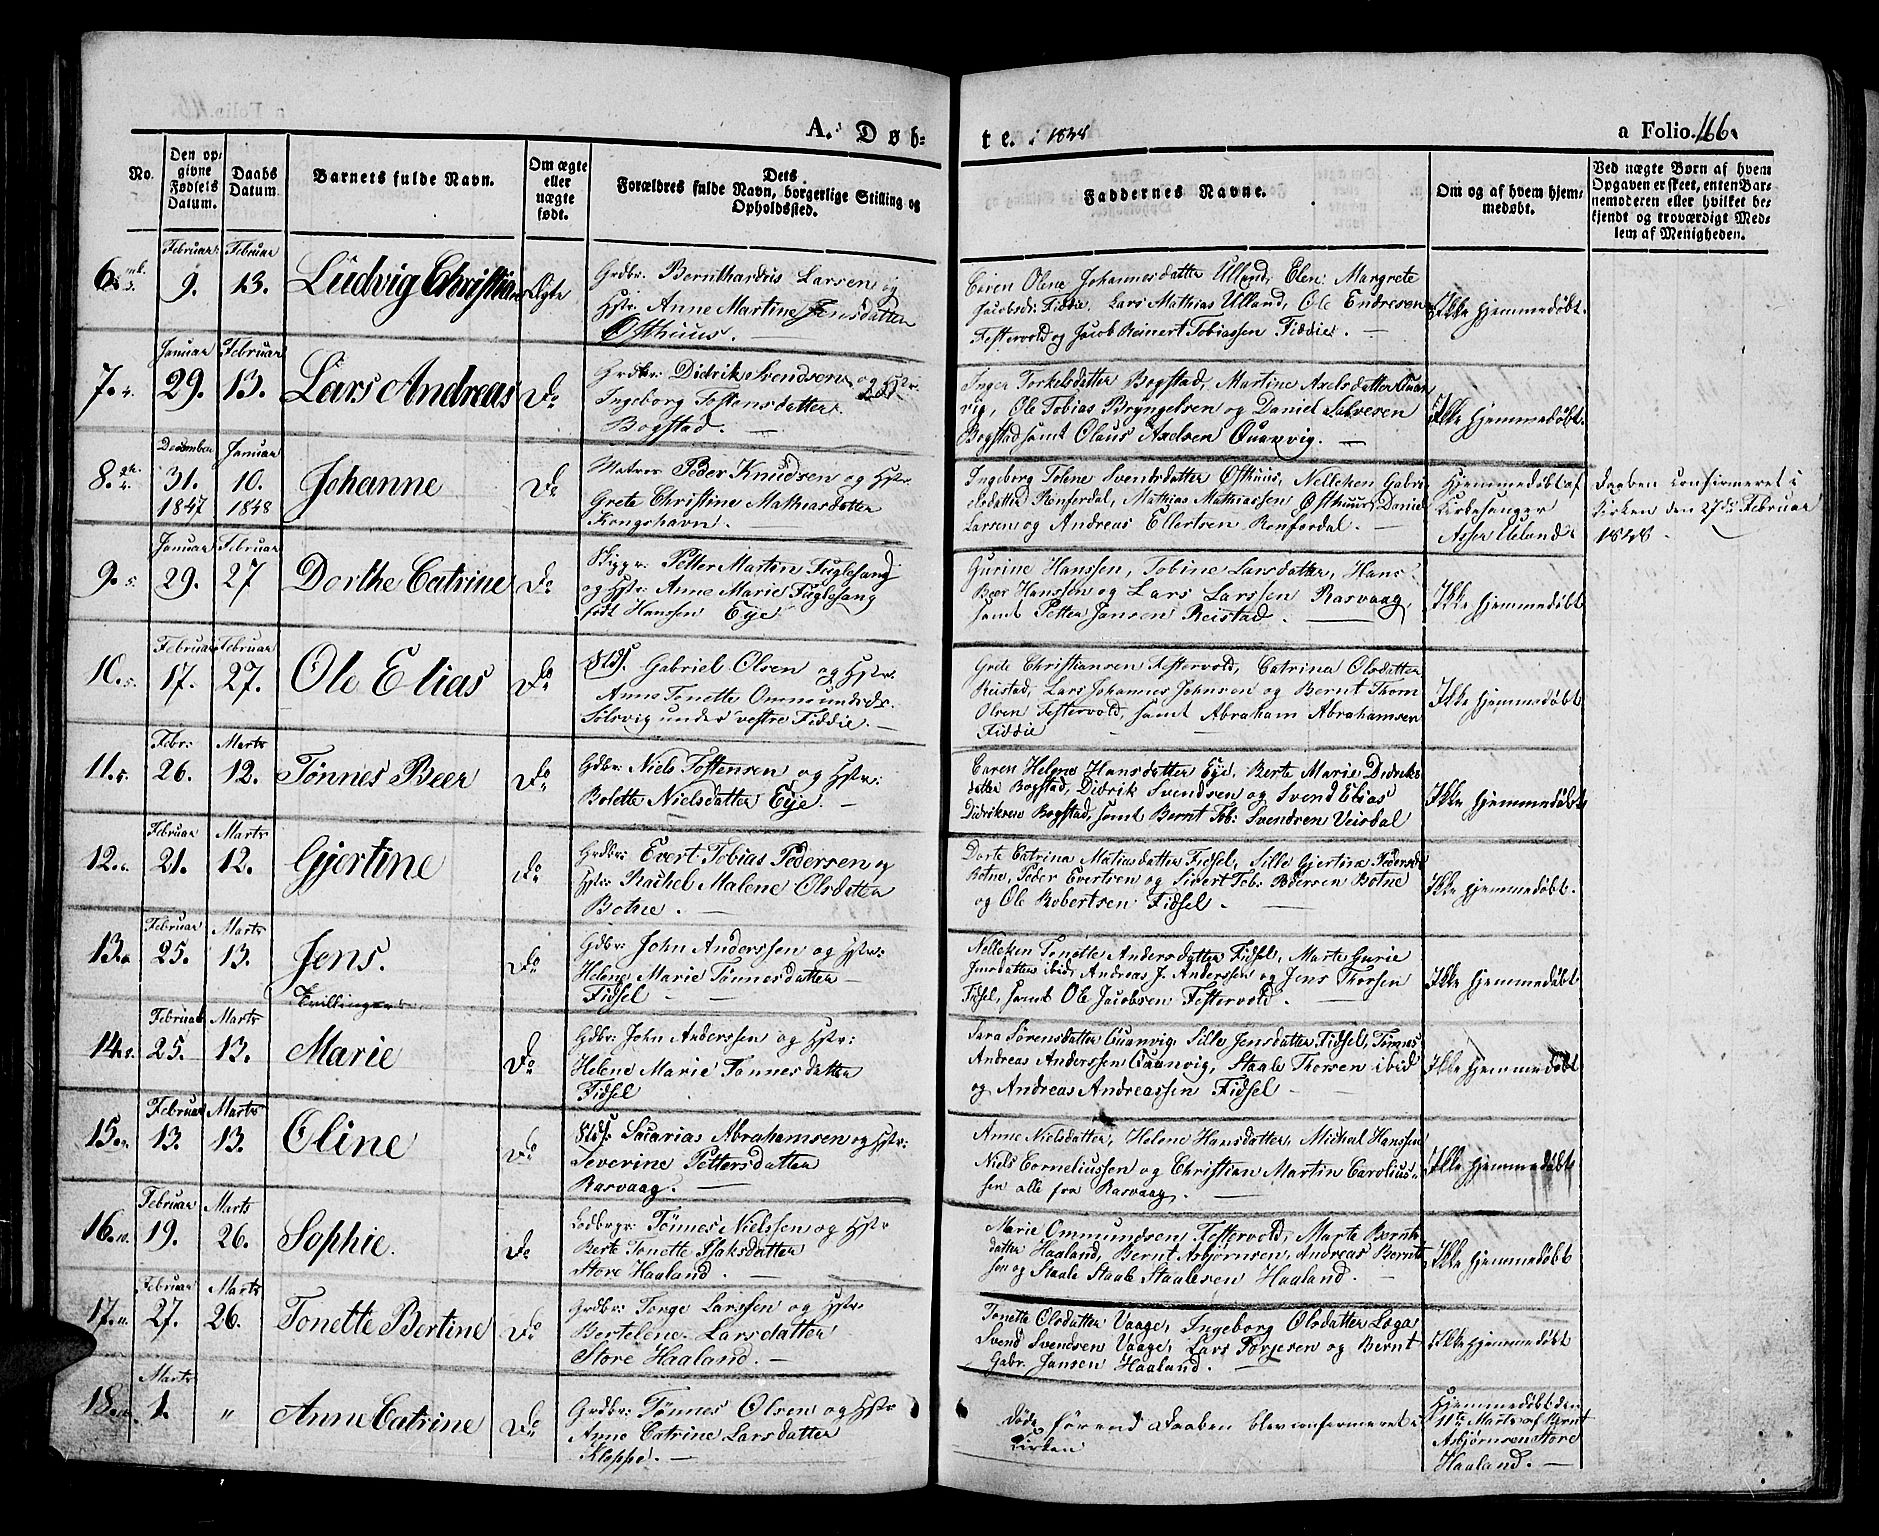 A. Døb-
te. 1848
a Folio. 166.
No.
Den op-
givne
Fødsels
Datum.
Daabs
Datum.
Barnets fulde Navn.
Om ægte
eller
uægte
født.
Dets
Forældres fulde Navn, borgerlige Stilling og
Opholdssted.
Faddernes Navne.
Om og af hvem hjem-
medøbt.
Ved uægte Børn af hvem
Opgaven er skeet, enten Bar-
nemoderen eller hvilket be-
kjendt og troværdigt Med-
lem af Menigheden.
6.
Februar
9.
Februar
13.
Ludvig Christian
Ægte
Grdbr: Bernthardus Larsen og
Hstr: Anne Martine Jensdatter
Østhuus. —
Caren Olene Johannesdatter Ulland, Elen Margrete
Jacobsd: Fiddie, Lars Mathias Ulland, Ole Endresen
Festervold og Jacob Reinert Tobiassen Fiddie. —
Ikke hjemmedøbt.
7.
Januar
29.
Februar
13.
Lars Andreas
Do
Grdbr: Didrik Svendsen og Hstr:
Ingeborg Tostensdatter
Bogstad. —
Inger Torkelsdatter Bogstad, Martine Axelsdatter Quan-
vig, Ole Tobias Bryngelsen og Daniel Salvesen
Bogstad samt Olaus Axelsen Quanvig. —
Ikke hjemmedøbt.
8.
December
31.
1847
Januar
10.
1848
Johanne
Do
Matros Peder Knudsen og Hstr:
Grete Christine Mathiasdatter
Kongshavn. —
Ingeborg Tolene Svendsdatter Østhuus, Nelleken Gabri-
elsdatter Renfordal, Mathias Mathiassen Østhuus, Daniel
Larsen og Andreas Ellertsen Renfordal. —
Hjemmedøbt af
Kirkesanger
Asser Ueland.
Daaben confirmeret i
Kirken den 27de Februar
1848.
9.
Januar
29.
Februar
27
Dorthe Catrine
Do
Skippr: Petter Martin Fuglesang
og Hstr: Anne Marie Fuglesang
født Hanssen Eye
Gurine Hanssen, Tobine Larsdatter, Hans
Beer Hanssen og Lars Larssen Rasvaag,
samt Petter Jansen Reistad. —
Ikke hjemmedøbt
10.
Februar
17.
Februar
27.
Ole Elias
Do
Slds. Gabriel Olsen og Hstr:
Anne Tonette Ommundsdr.
Sølvvig under vestre Fiddie. —
Grete Christiansen Festervold, Catrina Olsdatter
Reistad, Lars Johannes Johnsen og Bernt Thom
Olsen Festervold, samt Abraham Abrahamsen
Fiddie
Ikke hjemmedøbt
11.
Febr:
26.
Marts
12.
Tønnes Beer
Do
Gdbr: Niels Tostensen og Hstr:
Bolette Nielsdatter Eye. —
Caren Helene Hansdatter Eye, Berte Marie Didriks-
datter Bogstad, Didrik Svendsen og Svend Elias
Didriksen Bogstad, samt Bernt Tob: Svendsen Veisdal
Ikke hjemmedøbt
12.
Februar
21.
Marts
12.
Gjertine
Do
Grdbr: Evert Tobias Pedersen og
Hstr: Rachel Malene Olsdatter
Botne. —
Dorte Catrina Matiasdatter Fidsel, Sille Gjertine Pedersdr
Botne, Peder Evertsen og Sivert Tob: Pedersen Botne
og Ole Robertsen Fidsel. —
Ikke hjemmedøbt.
13.
Februar
25.
Marts
13.
Jens.
Tvillinger
Do
Gdbr: John Anderssen og Hstr:
Helene Marie Tønnesdatter —
Fidsel — —
Nelleken Tonette Andersdatter Fidsel, Marte Gurie
Jensdatter ibid, Andreas J. Anderssen og Jens Thorsen
Fidsel, samt Ole Jacobsen Festervold. —
Ikke hjemmedøbt
14.
Februar
25.
Marts
13.
Marie
Do
Gdbr: John Anderssen og Hstr:
Helene Marie Tønnesdatter
Fidsel
Sara Sørensdatter Quanvig, Sille Jensdatter Fidsel, Tønnes
Andreas Anderssen Quanvig, Staale Thorsen ibid
og Andreas Andreassen Fidsel —
Ikke hjemmedøbt
15.
Februar
13.
Marts
13.
Oline
Do
Slds. Sacarias Abrahamsen og Hstr:
Severine Pettersdatter
Rasvaag. —
Anne Nielsdatter, Helene Hansdatter, Michal Hanssen
Niels Corneliussen og Christian Martin Carolius-
sen alle fra Rasvaag. —
Ikke hjemmedøbt
16.
Februar
19.
Marts
26.
Sophie.
Do
Ledbrgr: Tønnes Nielssen og Hstr
Berte Tonette Isaksdatter
Store Haaland. —
Marie Ommundsen Festervold, Marte Bernts-
datter Haaland, Bernt Asbjørnsen, Andreas Bernt-
sen og Staale Staalesen Haaland. —
Ikke hjemmedøbt
17.
Februar
27.
Marts
26.
Tonette Bertine
Do
Grdbr: Torge Larssen og Hstr:
Bertelene Larsdatter
Store Haaland. —
Tonette Olsdatter Vaage, Ingeborg Olsdatter Loga
Svend Svendsen Vaage, Lars Torjesen og Bernt
Gabr. Jansen Haaland. —
Ikke hjemmedøbt
18.
Marts
1.
"
Anne Catrine
Do
Grdbr: Tønnes Olsen og Hstr
Anne Catrine Larsdatter
Kloppe. —
Døde førend Daaben blev confirmeret i
Kirken
Hjemmedøbt den
11te Marts af Bernt
Asbjørnsen Store
Haaland. —